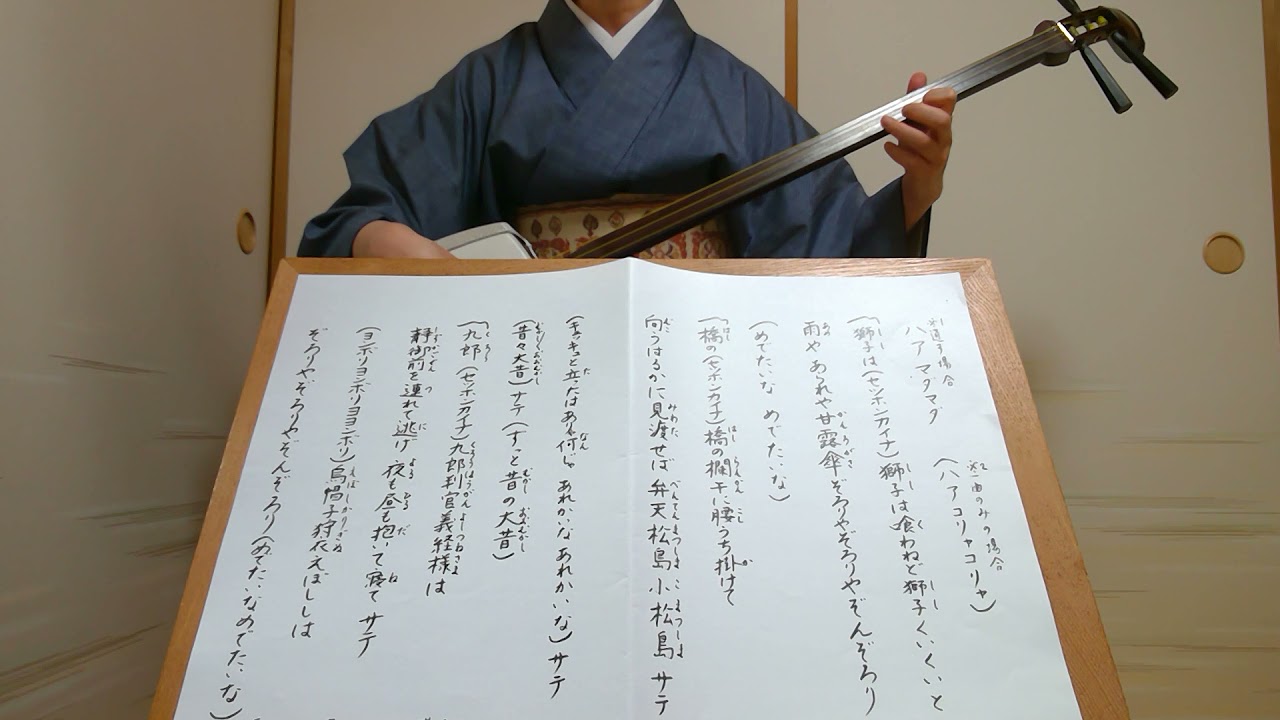 ※1 道ずの場合
ハア マダマダ
※2 曲のみの場合
(ハアコリャコリャ)
「獅子は(センホンカイナ)獅子は喰わねど獅子くいくいと
雨や あられや甘露傘ぞろりやぞろりやぞんぞろり
(めでたいな めでたいな)
「橋の(センホンカイナ)橋の欄干に腰うち掛けて
向うはるかに見渡せば 弁天松島小松島 サテ
(キュキュと立たはあも何じゃ あれかいなあれかいな) サテ
(昔々大昔) サテ (すっと昔の大昔)
「九郎 (センホンカイナ) 九郎判官義経様は
静御前を連れて逃げ 夜も昼も抱いて寝て サテ
(ヨンボリヨンボリヨヨンボリ) 烏帽子狩衣えぼししは
ぞろりやぞろりやぞんぞろり (めでたいなめでたいな)